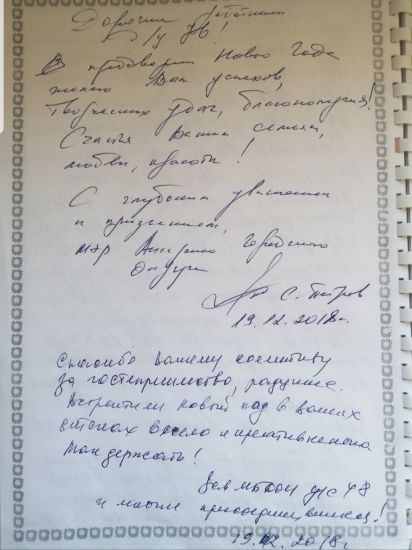 Дорогие
В преддверии Нового Года
желаю Вам успехов,
Творческих удач, благополучия!
Счастья Вашим семьям,
любви, красоты!
С глубоким уважением
и признанием,
мэр Анжерского городского
округа
С. Петров
19.12.2018г.
Спасибо Вашему коллективу
за гостеприимство, радушие.
Встретили Новый год в ваших
стенах весело и креативненько
Так держать!
19.12.2018г.